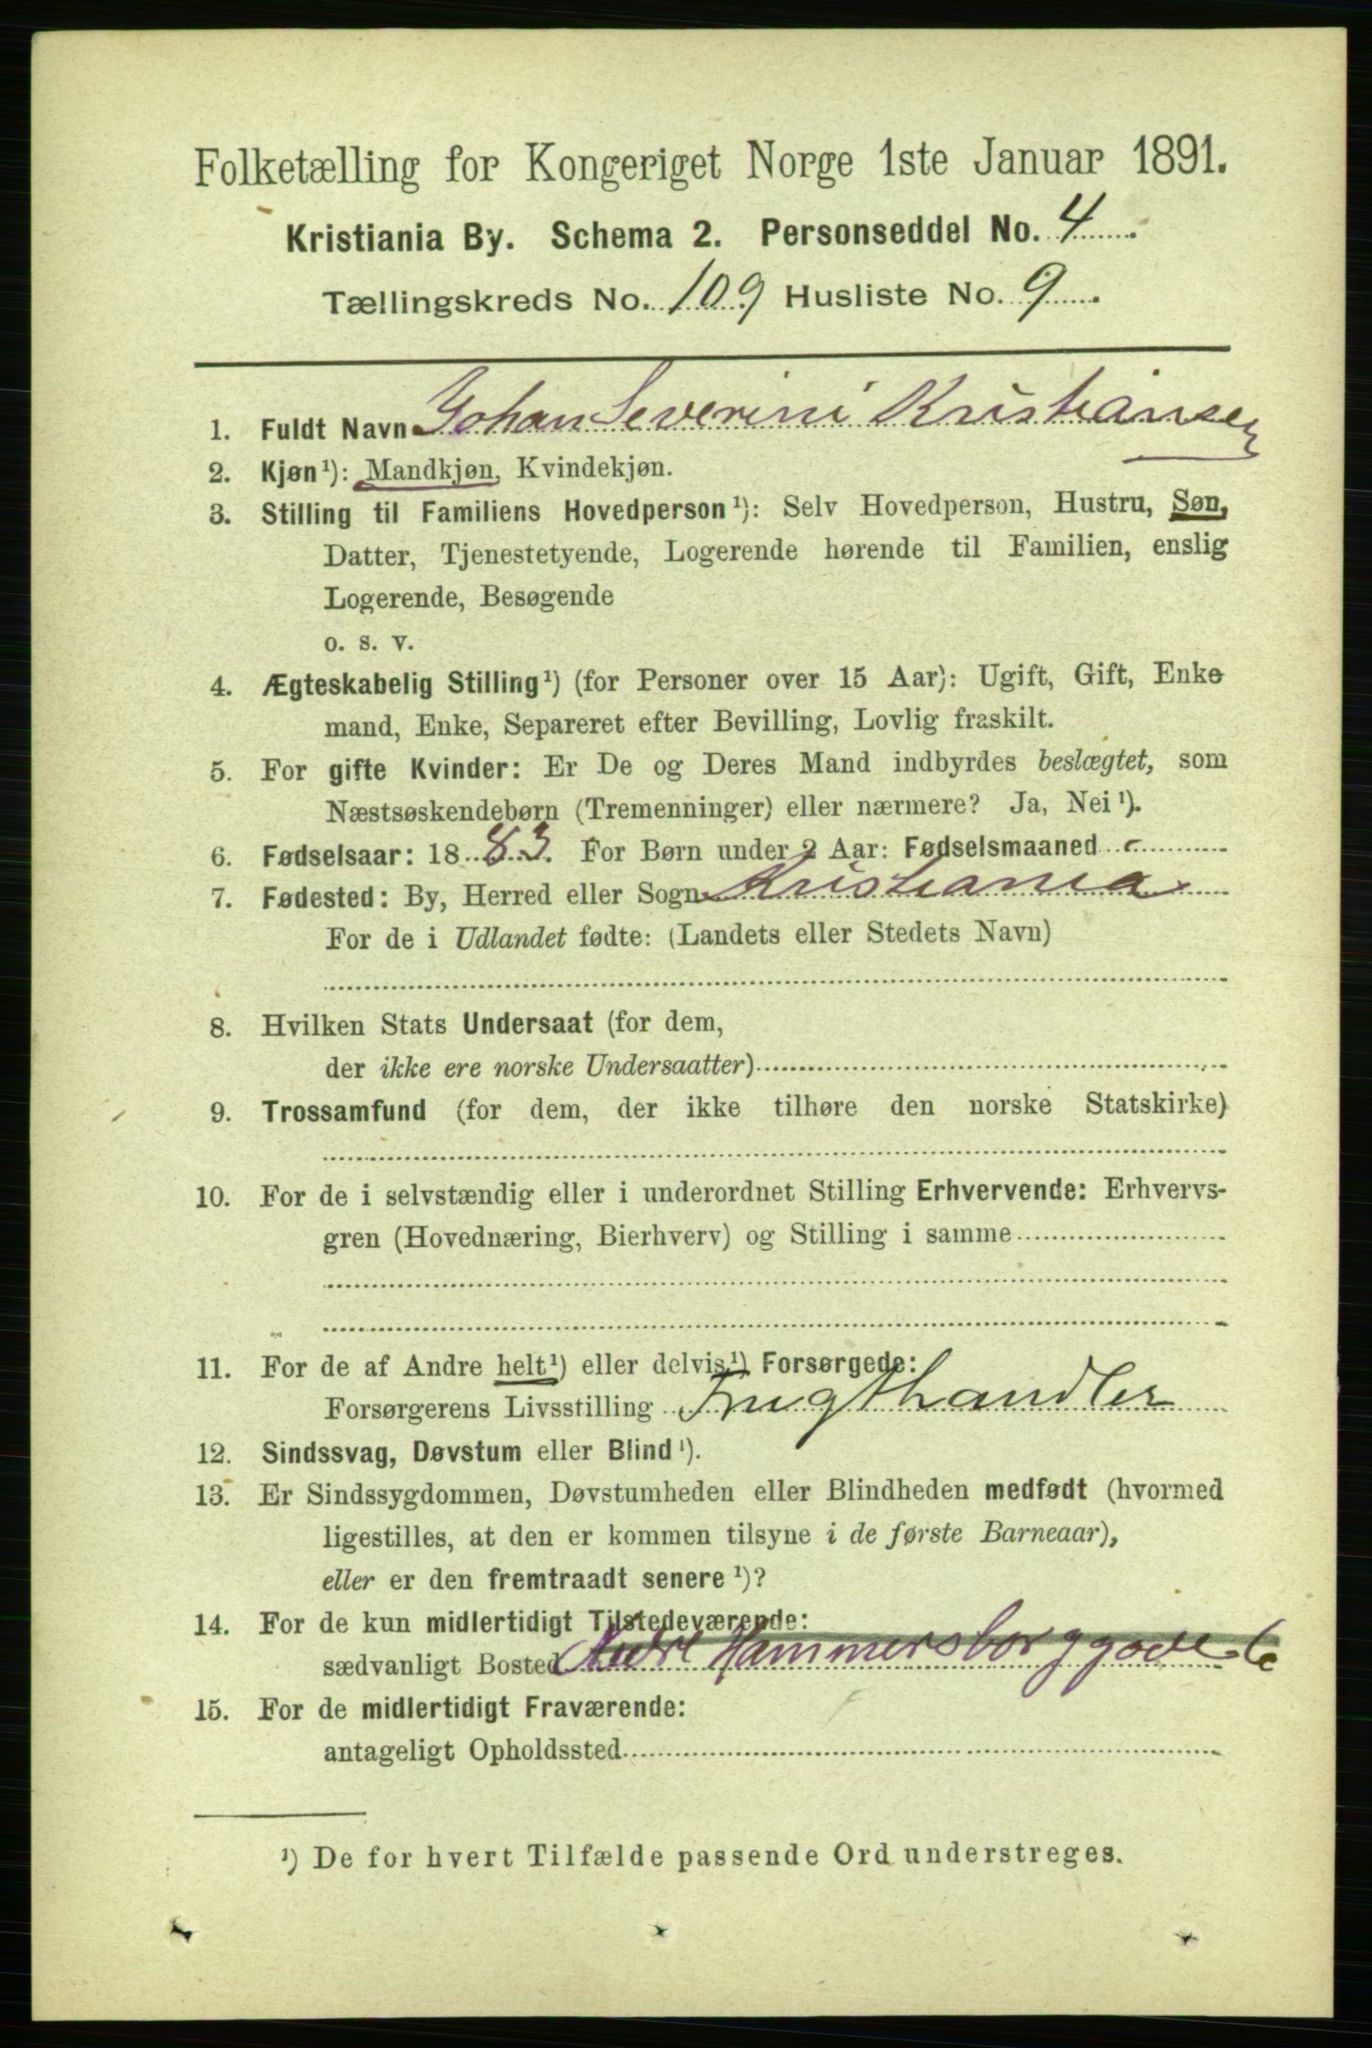 Folketælling for Kongeriget Norge 1ste Januar 1891.
Kristiania By. Schema 2. Personseddel No. 4
Tællingskreds No. 109 Husliste No. 9
1. Fuldt Navn Johan Severini Kristiansen
2. Kjøn¹): Mandkjøn, Kvindekjøn.
3. Stilling til Familiens Hovedperson¹): Selv Hovedperson, Hustru, Søn,
Datter, Tjenestetyende, Logerende hørende til Familien, enslig
Logerende, Besøgende
o. s. v.
4. Ægteskabelig Stilling¹) (for Personer over 15 Aar): Ugift, Gift, Enke
mand, Enke, Separeret efter Bevilling, Lovlig fraskilt.
5. For gifte Kvinder: Er De og Deres Mand indbyrdes beslægtet, som
Næstsøskendebørn (Tremenninger) eller nærmere? Ja, Nei¹).
6. Fødselsaar: 1883. For Børn under 2 Aar: Fødselsmaaned
7. Fødested: By, Herred eller Sogn Kristiania
For de i Udlandet fødte: (Landets eller Stedets Navn)
8. Hvilken Stats Undersaat (for dem,
der ikke ere norske Undersaatter)
9. Trossamfund (for dem, der ikke tilhøre den norske Statskirke)
10. For de i selvstændig eller i underordnet Stilling Erhvervende: Erhvervs-
gren (Hovednæring, Bierhverv) og Stilling i samme
11. For de af Andre helt¹) eller delvis¹) Forsørgede:
Forsørgerens Livsstilling Frugthandler
12. Sindssvag, Døvstum eller Blind¹).
13. Er Sindssygdommen, Døvstumheden eller Blindheden medfødt (hvormed
ligestilles, at den er kommen tilsyne i de første Barneaar),
eller er den fremtraadt senere¹)?
14. For de kun midlertidigt Tilstedeværende:
sædvanligt Bosted Hammersborggade 6
15. For de midlertidigt Fraværende:
antageligt Opholdssted
¹) De for hvert Tilfælde passende Ord understreges.